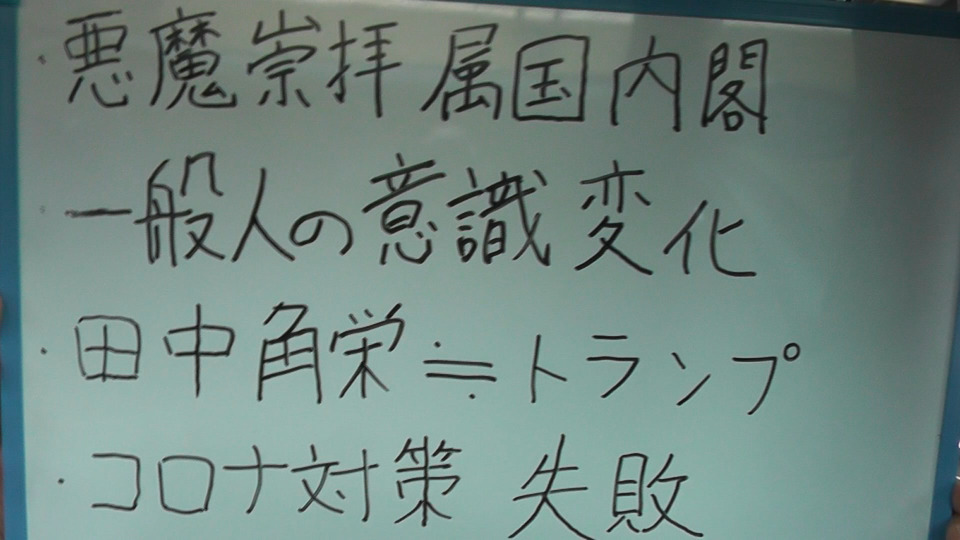 ・悪魔崇拝 属国内閣
・一般人の意識 変化
・田中角栄≒トランプ
・コロナ対策 失敗